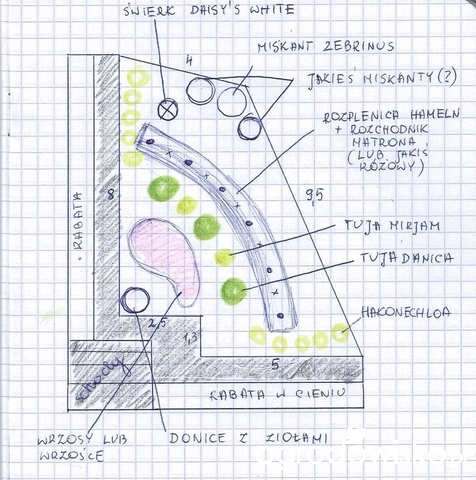 ŚWIERK DAISY'S WHITE
MISKANT ZEBRINUS
4
JAKIEŚ MISKANTY(?)
ROZPLENICA HAMELN
+ ROZCHODNIK
MATRONA
(LUB JAKIŚ
RÓŻOWY)
8
9,5
RABATA
TUJA MIRJAM
TUJA DANICA
HAKONECHLOA
2,5
1,3
5
schody
RABATA W CIENIU
WRZOSY LUB
WRZOŚCE
DONICE Z ZIOŁAMI